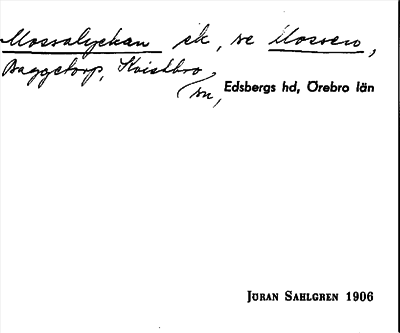 Mossalyckan sk, se Mossen,
Baggetorp, Kvistbro
sn, Edsbergs hd, Örebro län
JÖRAN SAHLGREN 1906